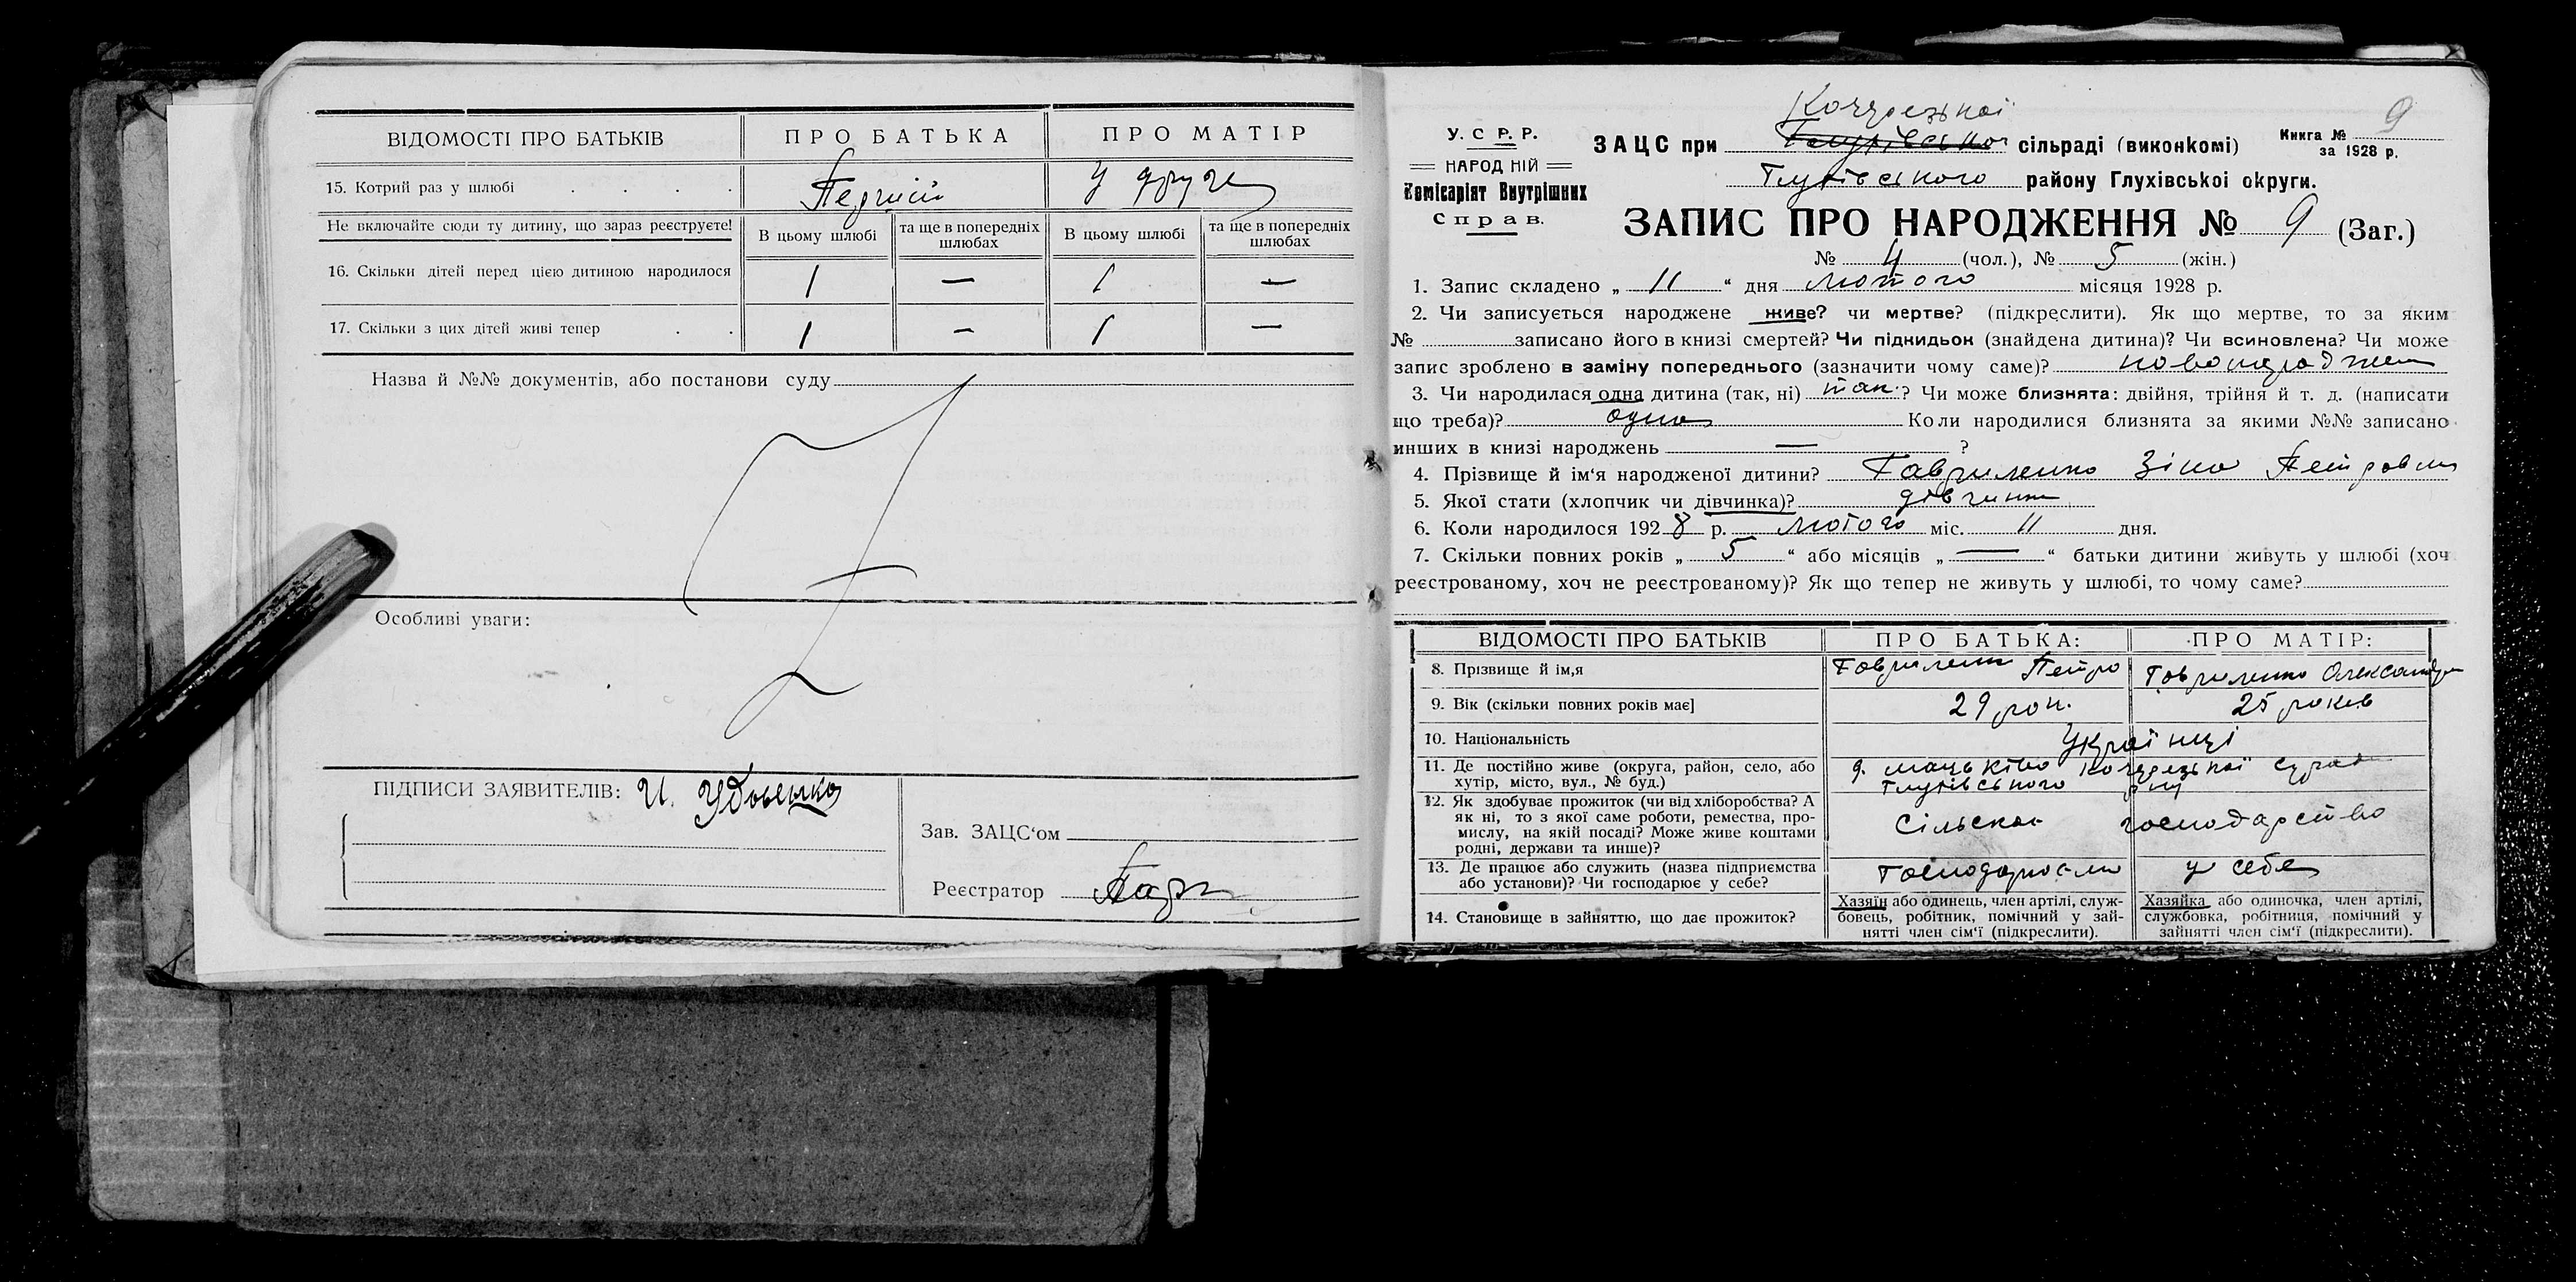 ВІДОМОСТІ ПРО БАТЬКІВ ПРО БАТЬКА ПРО МАТІР
15. Котрий раз у шлюбі . . . . Перший У друге
Не включайте сюди ту дитину, що зараз реєструєте! В цьому шлюбі та ще в попередніх шлюбах В цьому шлюбі та ще в попередніх шлюбах
16. Скільки дітей перед цією дитиною народилося 1 — 1 —
17. Скільки з цих дітей живі тепер . . 1 — 1 —
Назва й №№ документів, або постанови суду
Особливі уваги:
ПІДПИСИ ЗАЯВИТЕЛІВ: И. Удовенко
Зав. ЗАЦС‘ом
Реєстратор
9
У. С Р. Р.
НАРОДНІЙ
Комісаріят Внутрішних
Справ.
ЗАЦС при Глухівсько сільраді (виконкомі)
Книга №
за 1928 р.
Глухівського району Глухівської округи.
ЗАПИС ПРО НАРОДЖЕННЯ № 9 (Заг.)
№ 4 (чол.), № 5 (жін.)
1. Запис складено „ 11 “ дня лютого місяця 1928 р.
2. Чи записується народжене живе? чи мертве? (підкреслити). Як що мертве, то за яким
№ записано його в книзі смертей? Чи підкидьок (знайдена дитина)? Чи всиновлена? Чи може
запис зроблено в заміну попереднього (зазначити чому саме)?
3. Чи народилася одна дитина (так, ні) так ? Чи може близнята: двійня, трійня й т. д. (написати
що треба)? одна Коли народилися близнята за якими №№ записано
инших в книзі народжень — ?
4. Прізвище й ім‘я народженої дитини? Гавриленко Зіна Петровна
5. Якої стати (хлопчик чи дівчинка)? дівчинка
6. Коли народилося 1928 р. лютого міс. 11 дня.
7. Скільки повних років „ 5 “ або місяців „ — “ батьки дитини живуть у шлюбі (хоч
реєстрованому, хоч не реєстрованому)? Як що тепер не живуть у шлюбі, то чому саме?
ВІДОМОСТІ ПРО БАТЬКІВ ПРО БАТЬКА: ПРО МАТІР:
8. Прізвище й ім,я Гавриленко Петро Гавриленко Олександра
9. Вік (скільки повних років має] 29 рок. 25 років
10. Національність Українці
11. Де постійно живе (округа, район, село, або
хутір, місто, вул., № буд.)
Глухівського р-ну
12. Як здобуває прожиток (чи від хліборобства? А
як ні, то з якої саме роботи, ремества, про-
мислу, на якій посаді? Може живе коштами
родні, держави та инше)?
Сільске господарство
13. Де працює або служить (назва підприємства
або установи)? Чи господарює у себе?
у себе
14. Становище в зайняттю, що дає прожиток?
Хазяїн або одинець, член артілі, служ-
бовець, робітник, помічний у зай-
нятті член сім‘ї (підкреслити).
Хазяйка або одиночка, член артілі,
службовка, робітниця, помічний у
зайнятті член сім‘ї (підкреслити).